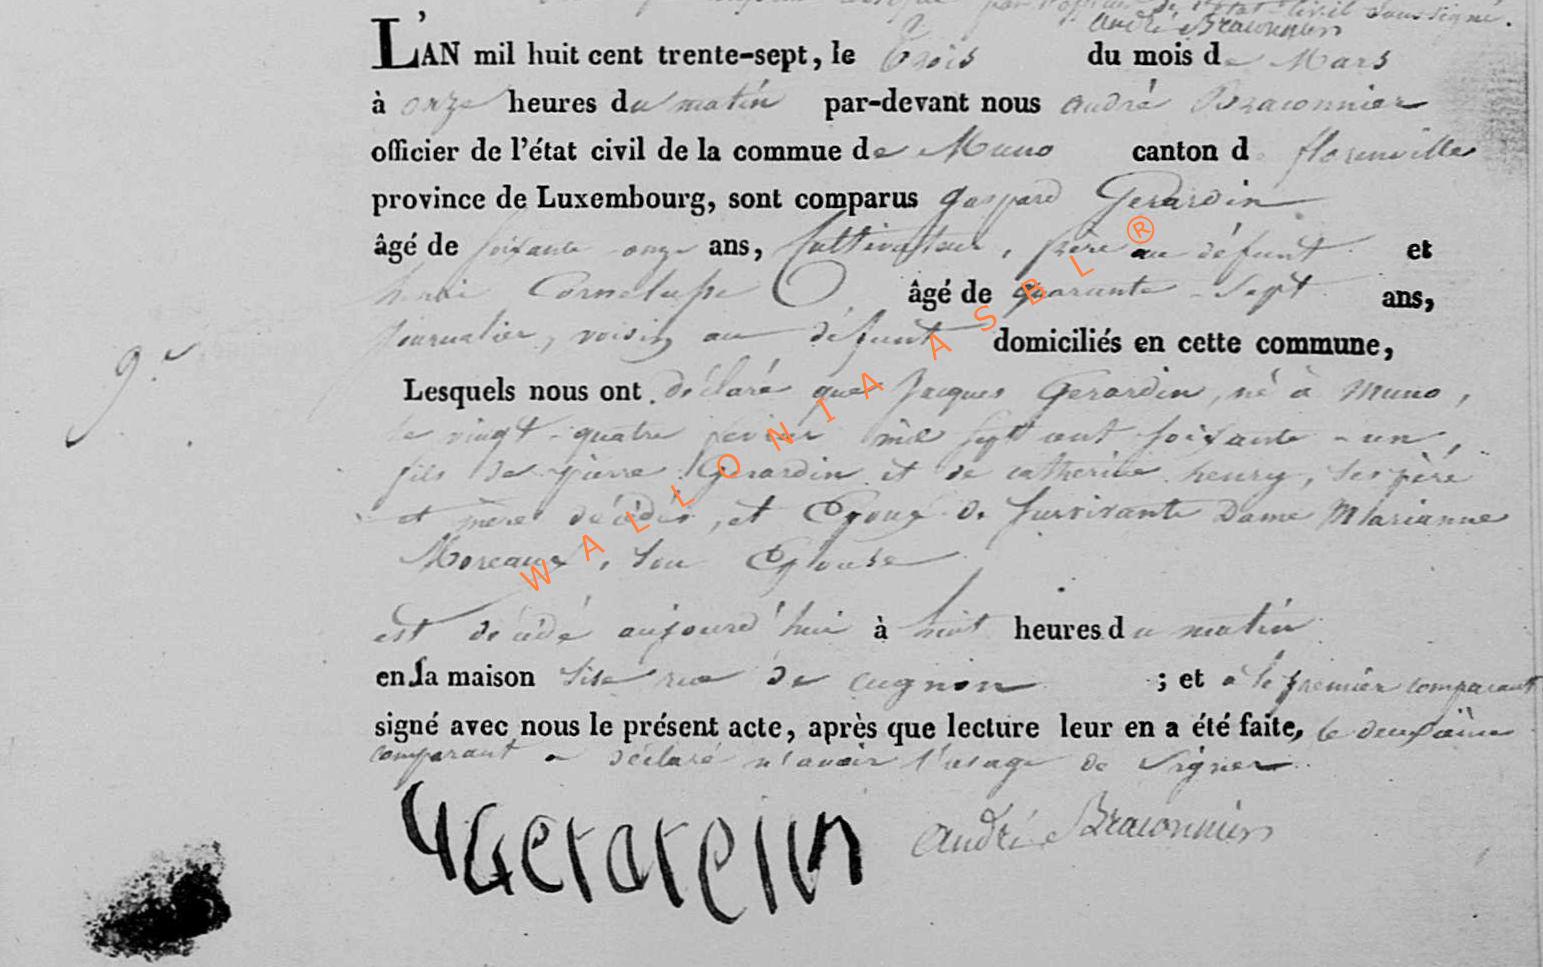 par l'officier de l'état civil soussigné.
André Braconnier
L'AN mil huit cent trente-sept, le trois du mois de Mars
à onze heures du matin par-devant nous andré Braconnier
officier de l'état civil de la commue de Muno canton d florenville
province de Luxembourg, sont comparus gaspard Gerardin
âgé de soixante onze ans, Cultivateur, frère au défunt et
henri Cornelusse âgé de quarante-Sept ans,
journalier, voisin au défunt domiciliés en cette commune,
9.e
Lesquels nous ont déclaré que Jacques Gerardin, né à Muno,
le vingt-quatre fevrier mil sept cent soixante-un,
fils de pierre Gerardin et de catherine henry, ses père
et mère décédés, et Epoux de survivante Dame Marianne
Moreaux, son Epouse
est décédé aujourd'hui à huit heures du matin
en la maison sise rue de cugnon ; et a le premier comparant
signé avec nous le présent acte, après que lecture leur en a été faite, le deuxième
comparant a déclaré n'avoir l'usage de signer
Gerardin André Braconnier
WALLONIA ASBL ®